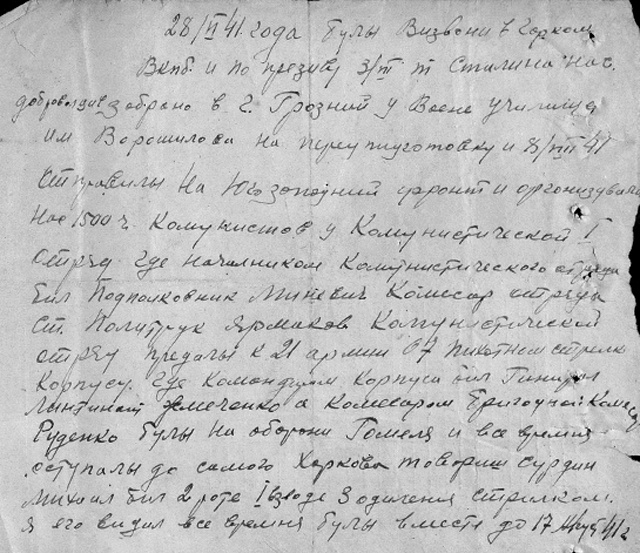 28/VI 41 года булы Визвони в Горком
Вкпб. и по презиву 3/VII т Сталина нас
добровольцив забрано в г. Грозний у Воене училище
им Ворошилова на переподготовку и 8/VIII 41
Отправилы на Югозападний фронт и организували
нас 1500 ч. Комунистов у Комунистической I
отряд где началником Комунистического отряда
бил Подполковник Миневич Комисар отряда
Ст. Политрук Ярмаков Комунистический
отряд придалы к 21 армии 67 пихотнем стрелк
Корпусу. Где Командуючим Корпуса бил
Жмаченко а Комесаром Бригадной Комесар
Руденко булы на оборони Гомеля и все время
оступалы до самого Харкова товариш Сурдин
Михаил бил 2 роте I взводе 3 одиления стрилком.
Я его видил все времня булы вместе до 17 41 г